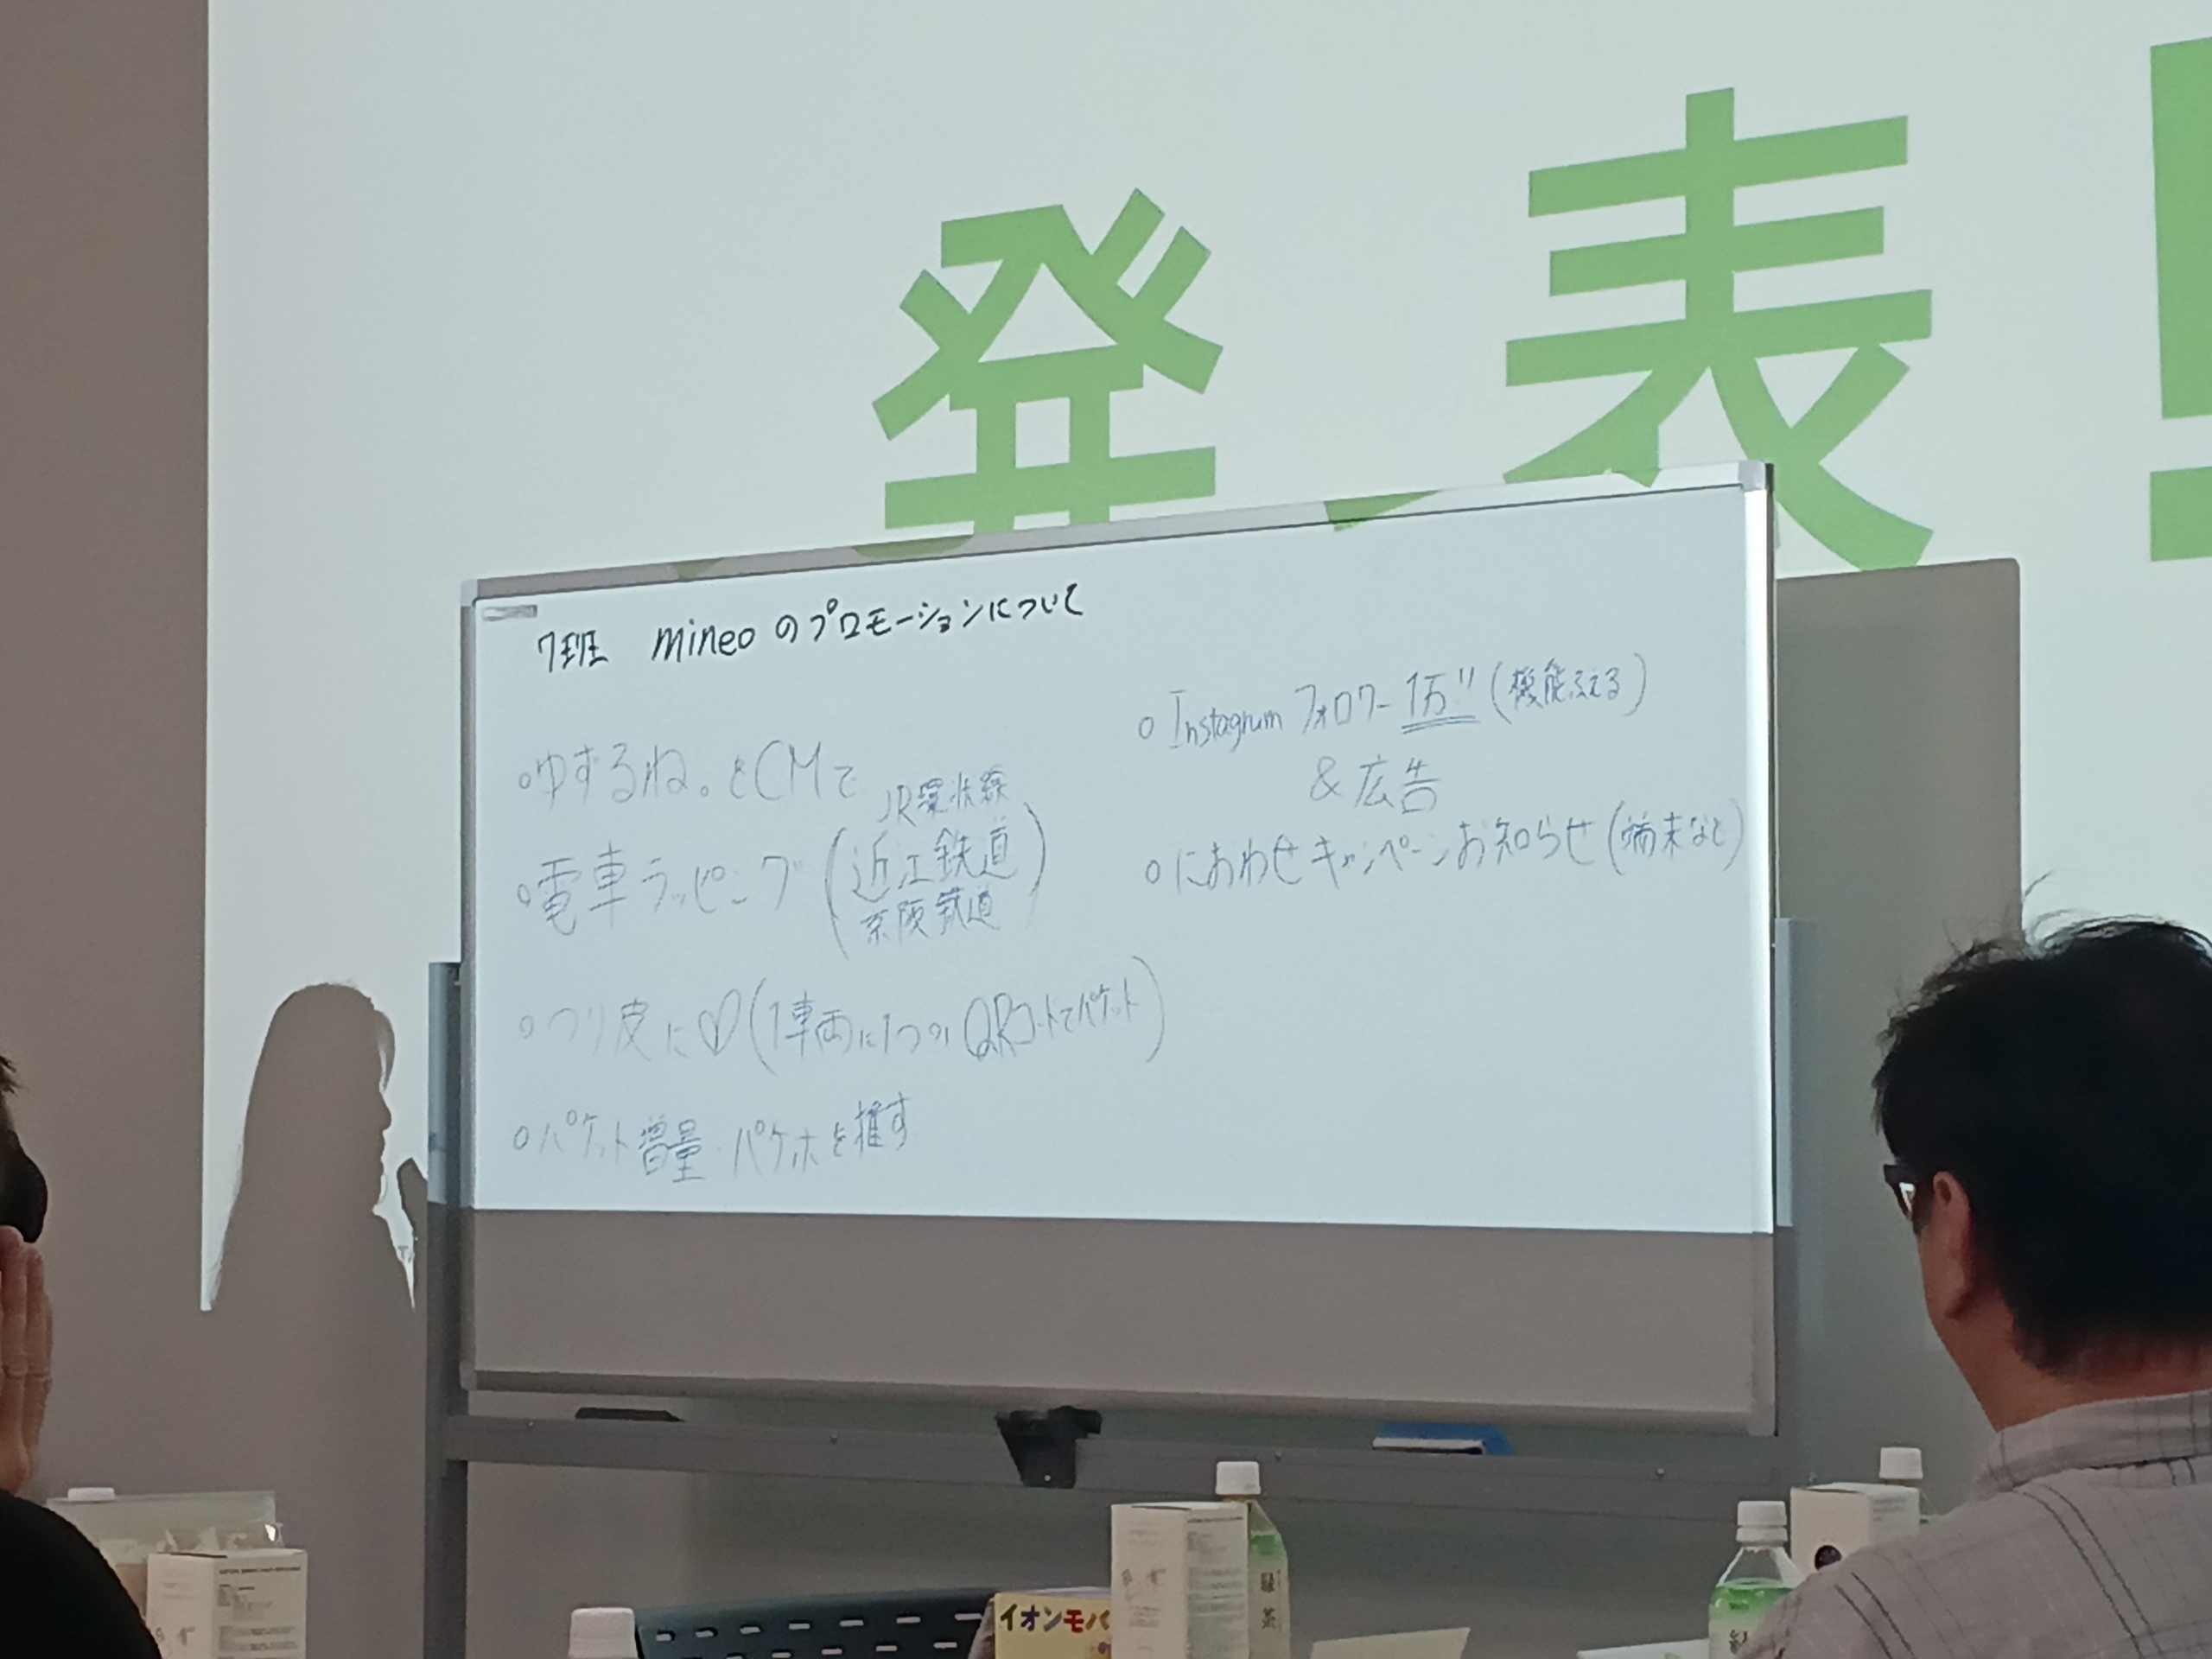 発表!
7班 mineoのプロモーションについて
○ゆずるね。をCMで
○電車ラッピング(JR環状線
近江鉄道
京阪鉄道)
○つり皮に♡(1車両に1つの QRコードでパケット)
○パケット増量・パケホを推す
○Instagram フォロワー 1万!! (機能ふえる)
&広告
○におわせキャンペーンお知らせ(端末など)
イオンモバ
緑茶